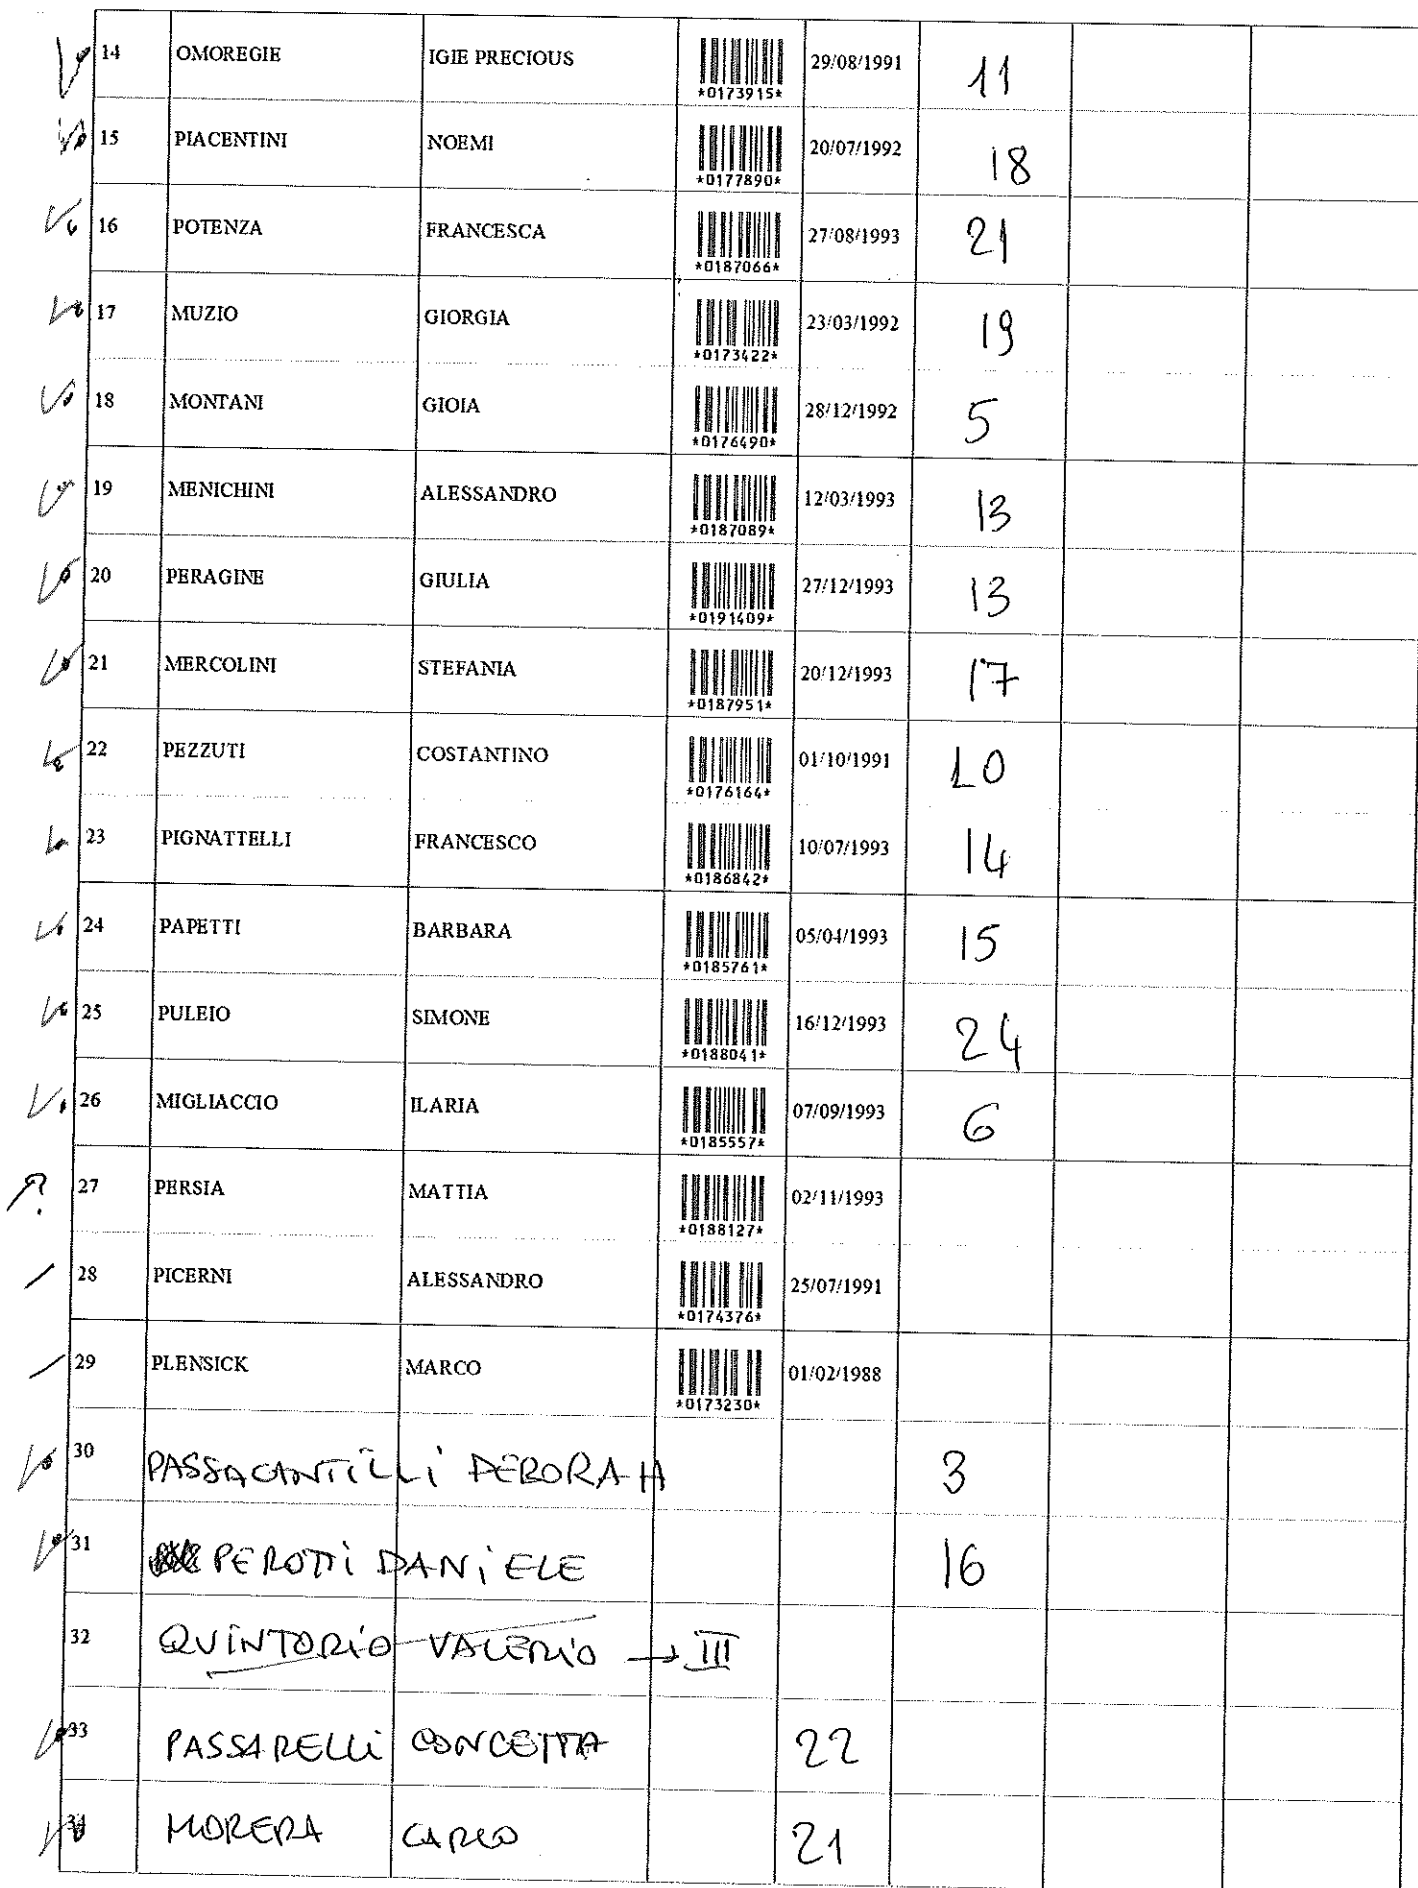 14 OMOREGIE IGIE PRECIOUS *0173915* 29/08/1991 11
15 PIACENTINI NOEMI *0177890* 20/07/1992 18
16 POTENZA FRANCESCA *0187066* 27/08/1993 21
17 MUZIO GIORGIA *0173422* 23/03/1992 19
18 MONTANI GIOIA *0176490* 28/12/1992 5
19 MENICHINI ALESSANDRO *0187089* 12/03/1993 13
20 PERAGINE GIULIA *0191409* 27/12/1993 13
21 MERCOLINI STEFANIA *0187951* 20/12/1993 17
22 PEZZUTI COSTANTINO *0176164* 01/10/1991 10
23 PIGNATTELLI FRANCESCO *0186842* 10/07/1993 14
24 PAPETTI BARBARA *0185761* 05/04/1993 15
25 PULEIO SIMONE *0188041* 16/12/1993 24
26 MIGLIACCIO ILARIA *0185557* 07/09/1993 6
? 27 PERSIA MATTIA *0188127* 02/11/1993
28 PICERNI ALESSANDRO *0174376* 25/07/1991
29 PLENSICK MARCO *0173230* 01/02/1988
30 PASSACANTILLI DEBORAH 3
31 PEROTTI DANIELE 16
32 QUINTORIO VALERIO → III
33 PASSARELLI CONCETTA 22
34 MORERA CARLO 21